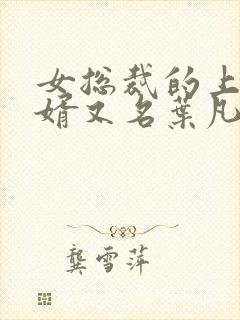 女总裁的上
婿又名葉凡
龔雪萍